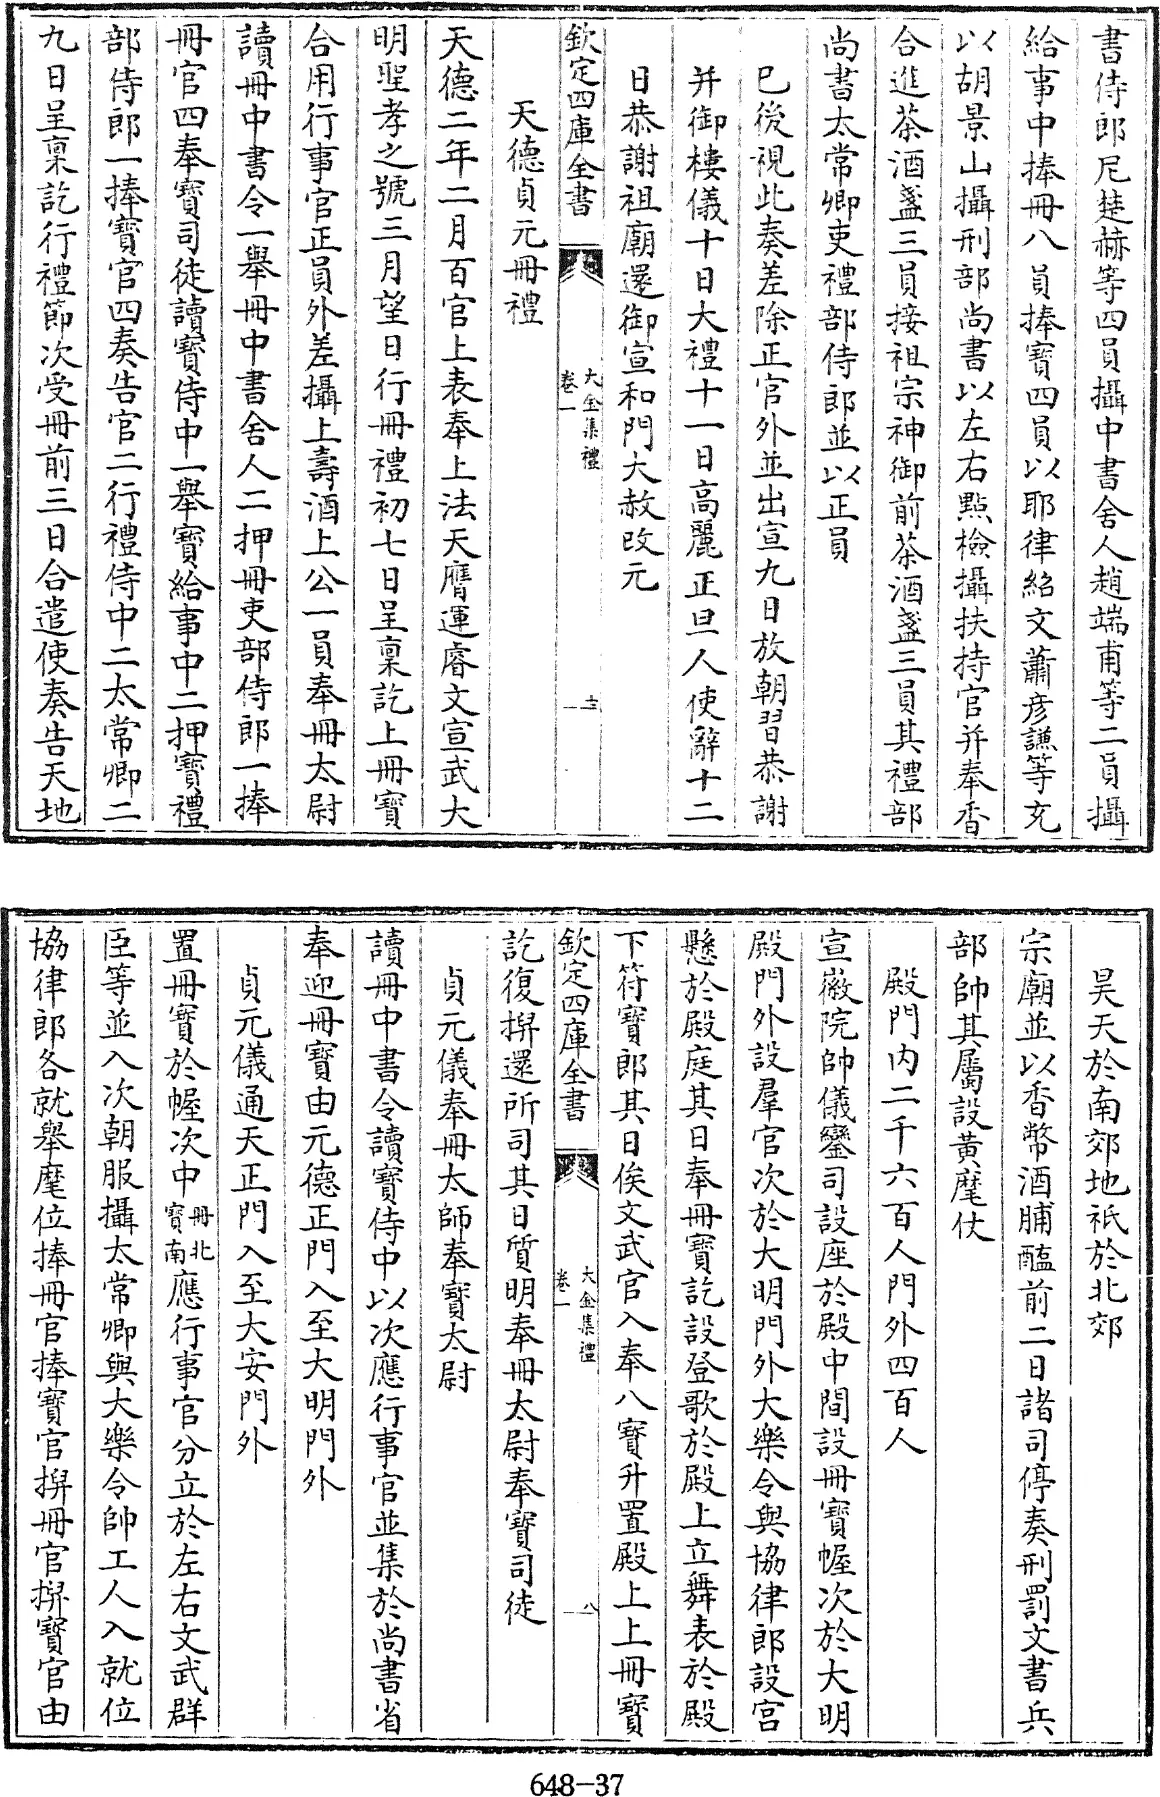 書侍郎尼楚赫等四員攝中書舍人趙端甫等二員攝
給事中捧冊八員捧寶四員以耶律紹文蕭彦讓等充
以胡景山攝刑部尚書以左右㸃檢攝扶持官并奉香
合進茶酒盞三員接祖宗神御前茶酒盞三員其禮部
尚書太常卿吏禮部侍郎並以正員
已後視此奏差除正官外並出宣九日放朝習恭謝
并御樓儀十日大禮十一日高麗正旦人使辭十二
日恭謝祖廟還御宣和門大赦改元
欽定四庫全書
大金集禮
卷一
天德貞元冊禮
天德二年二月百官上表奉上法天膺運睿文宣武大
明聖孝之號三月望日行冊禮初七日呈稟訖上冊寶
合用行事官正員外差攝上壽酒上公一員奉冊太尉
讀冊中書令一舉冊中書舍人二押冊吏部侍郎一捧
冊官四奉寶司徒讀寶侍中一舉寶給事中二押寶禮
部侍郎一捧寶官四奏告官二行禮侍中二太常卿二
九日呈稟訖行禮節次受冊前三日合遣使奏告天地
昊天於南郊地祇於北郊
宗廟並以香幣酒脯醢前二日諸司停奏刑罰文書兵
部帥其屬設黃麾仗
殿門内二千六百人門外四百人
宣徽院帥儀鸞司設座於殿中間設冊寶幄次於大明
殿門外設羣官次於大明門外大樂令與協律郎設宮
懸於殿庭其日奉冊寶訖設登歌於殿上立舞表於殿
下符寶郎其日俟文武官入奉八寶升置殿上上冊寶
欽定四庫全書
大金集禮
卷一
八
訖復搿還所司其日質明奉冊太尉奉寶司徒
貞元儀奉冊太師奉寶太尉
讀冊中書令讀寶侍中以次應行事官並集於尚書省
奉迎冊寶由元德正門入至大明門外
貞元儀通天正門入至大安門外
置冊寶於幄次中冊北寶南應行事官分立於左右文武群
臣等並入次朝服攝太常卿與大樂令帥工人入就位
協律郎各就舉麾位捧冊官捧寶官搿冊官搿寶官由
648-37